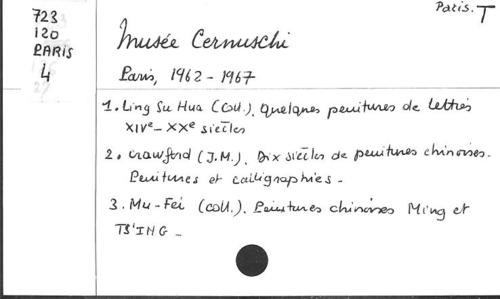 Paris. T
723
120
PARIS
4
Musée Cernuschi
Paris, 1962-1967
1. Ling Su Hua (Coll.). Quelques peintures de lettrés
XIVe-XXe siècles
2. Crawford (J.M.). Dix siècles de peintures chinoises.
Peintures et calligraphies -
3. Mu-Fei (Coll.). Peintures chinoises Ming et
TS'ING -